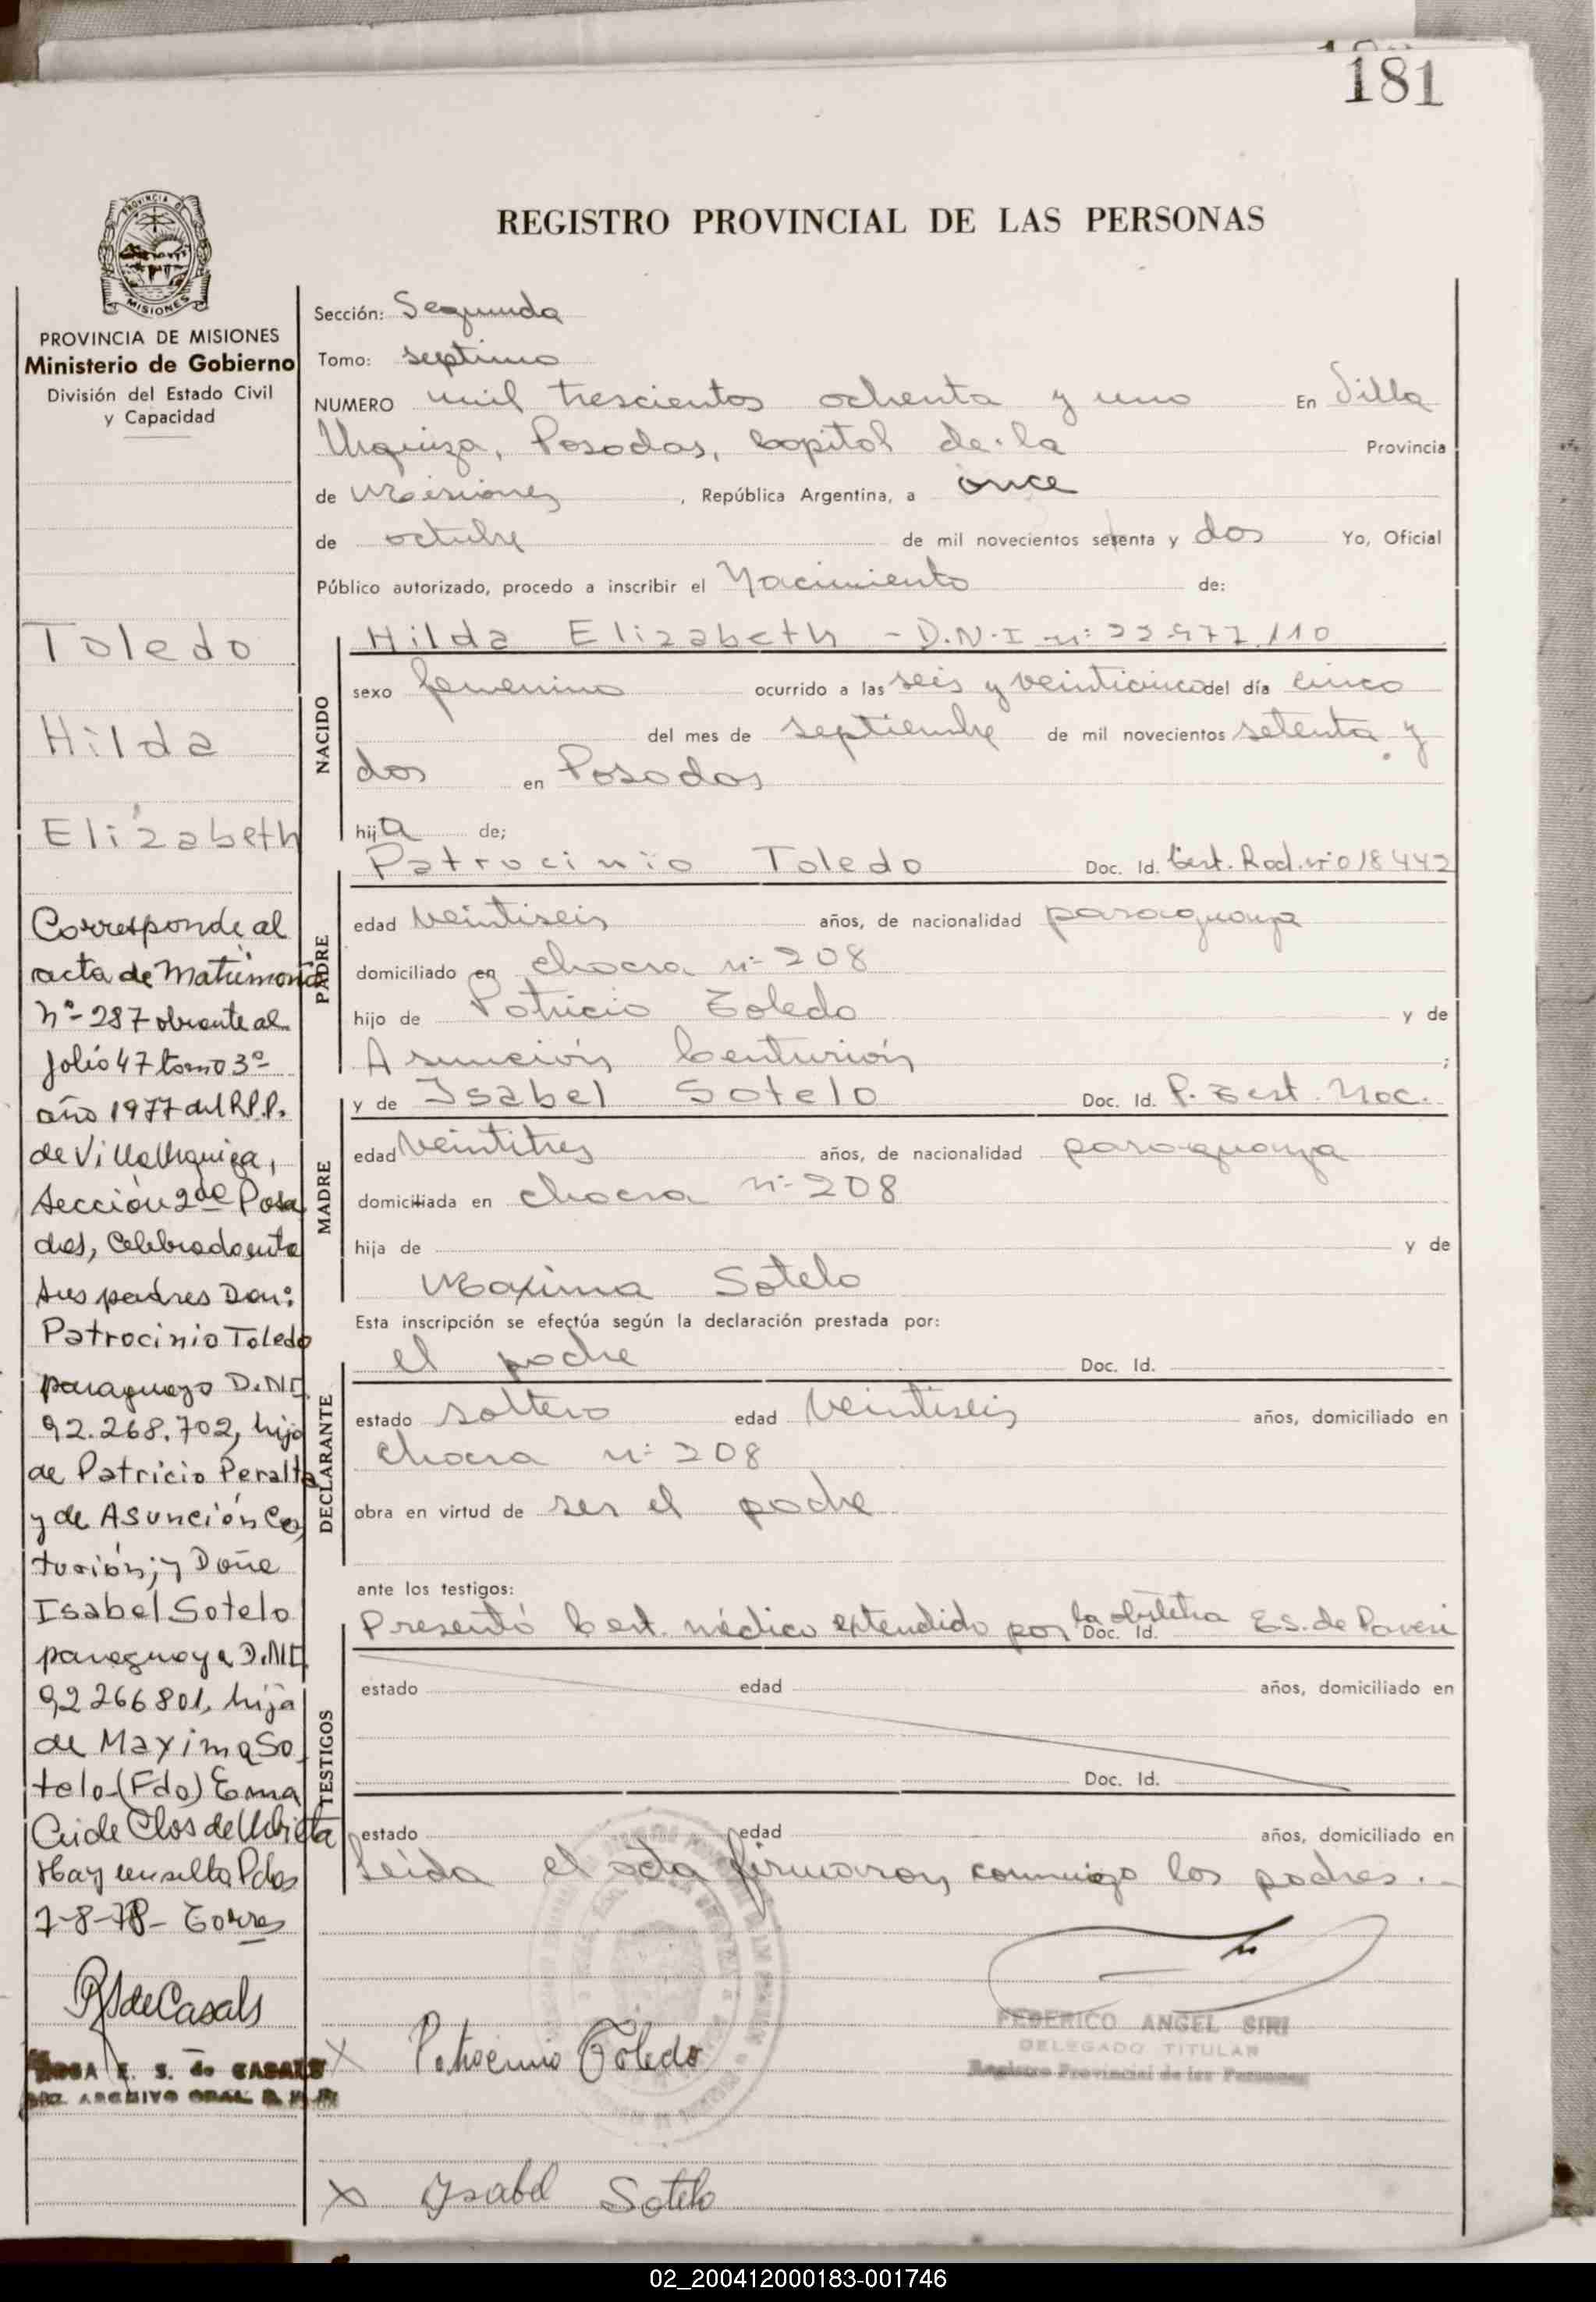 181
PROVINCIA DE
MISIONES
REGISTRO PROVINCIAL DE LAS PERSONAS
PROVINCIA DE MISIONES
Ministerio de Gobierno
División del Estado Civil
y Capacidad
Toledo
Hilda
Elizabeth
Corresponde al
acta de Matrimonio
nº 287 obrante al
folio 47 tomo 3º
año 1977 del R.P.P.
de Villa Urquiza,
Sección 2da Posa
das, Celebrado ente
sus padres Don:
Patrocinio Toledo
paraguayo D.N.I.
92.268.702, hijo
de Patricio Peralta
y de Asunción Cen
turión; y Doña
Isabel Sotelo
paraguaya D.N.I.
92 266801, hija
de Maxima So
telo-(Fdo) Ema
Clos de Ubieta
Hay un sello Pdas
7-8-78- Torres
RSdeCasals
ROSA E. S. de CASALS
ARCHIVO GRAL.
Sección: Segunda
Tomo: septimo
NUMERO mil trescientos ochenta y uno En Villa
Urquiza, Posadas, capital de la Provincia
de Misiones, República Argentina, a once
de octubre de mil novecientos setenta y dos Yo, Oficial
Público autorizado, procedo a inscribir el Nacimiento de:
NACIDO
Hilda Elizabeth - D.N.I nº 22.477.110
sexo femenino ocurrido a las seis y veinticinco del día cinco
del mes de septiembre de mil novecientos setenta y
dos en Posadas
hija de;
PADRE
Patrocinio Toledo Doc. Id. Cert. Rad. nº 018442
edad veintiseis años, de nacionalidad paraguaya
domiciliado en chacra nº 208
hijo de Patricio Toledo y de
Asunción Centurión ;
MADRE
y de Isabel Sotelo Doc. Id. P. Cert. Nac.
edad veintitres años, de nacionalidad paraguaya
domiciliada en chacra nº 208
hija de y de
Maxima Sotelo
Esta inscripción se efectúa según la declaración prestada por:
DECLARANTE
el padre Doc. Id.
estado soltero edad veintiseis años, domiciliado en
chacra nº 208
obra en virtud de ser el padre
ante los testigos:
TESTIGOS
Presentó Cert. médico extendido por la obstetra Doc. Id. E.S. de Paveri
estado edad años, domiciliado en
Doc. Id.
estado edad años, domiciliado en
Leida el acta firmaron conmigo los padres.-
FEDERICO ANGEL SIRI
DELEGADO TITULAR
Registro Provincial de las Personas
X Patrocinio Toledo
X Ysabel Sotelo
02_200412000183-001746